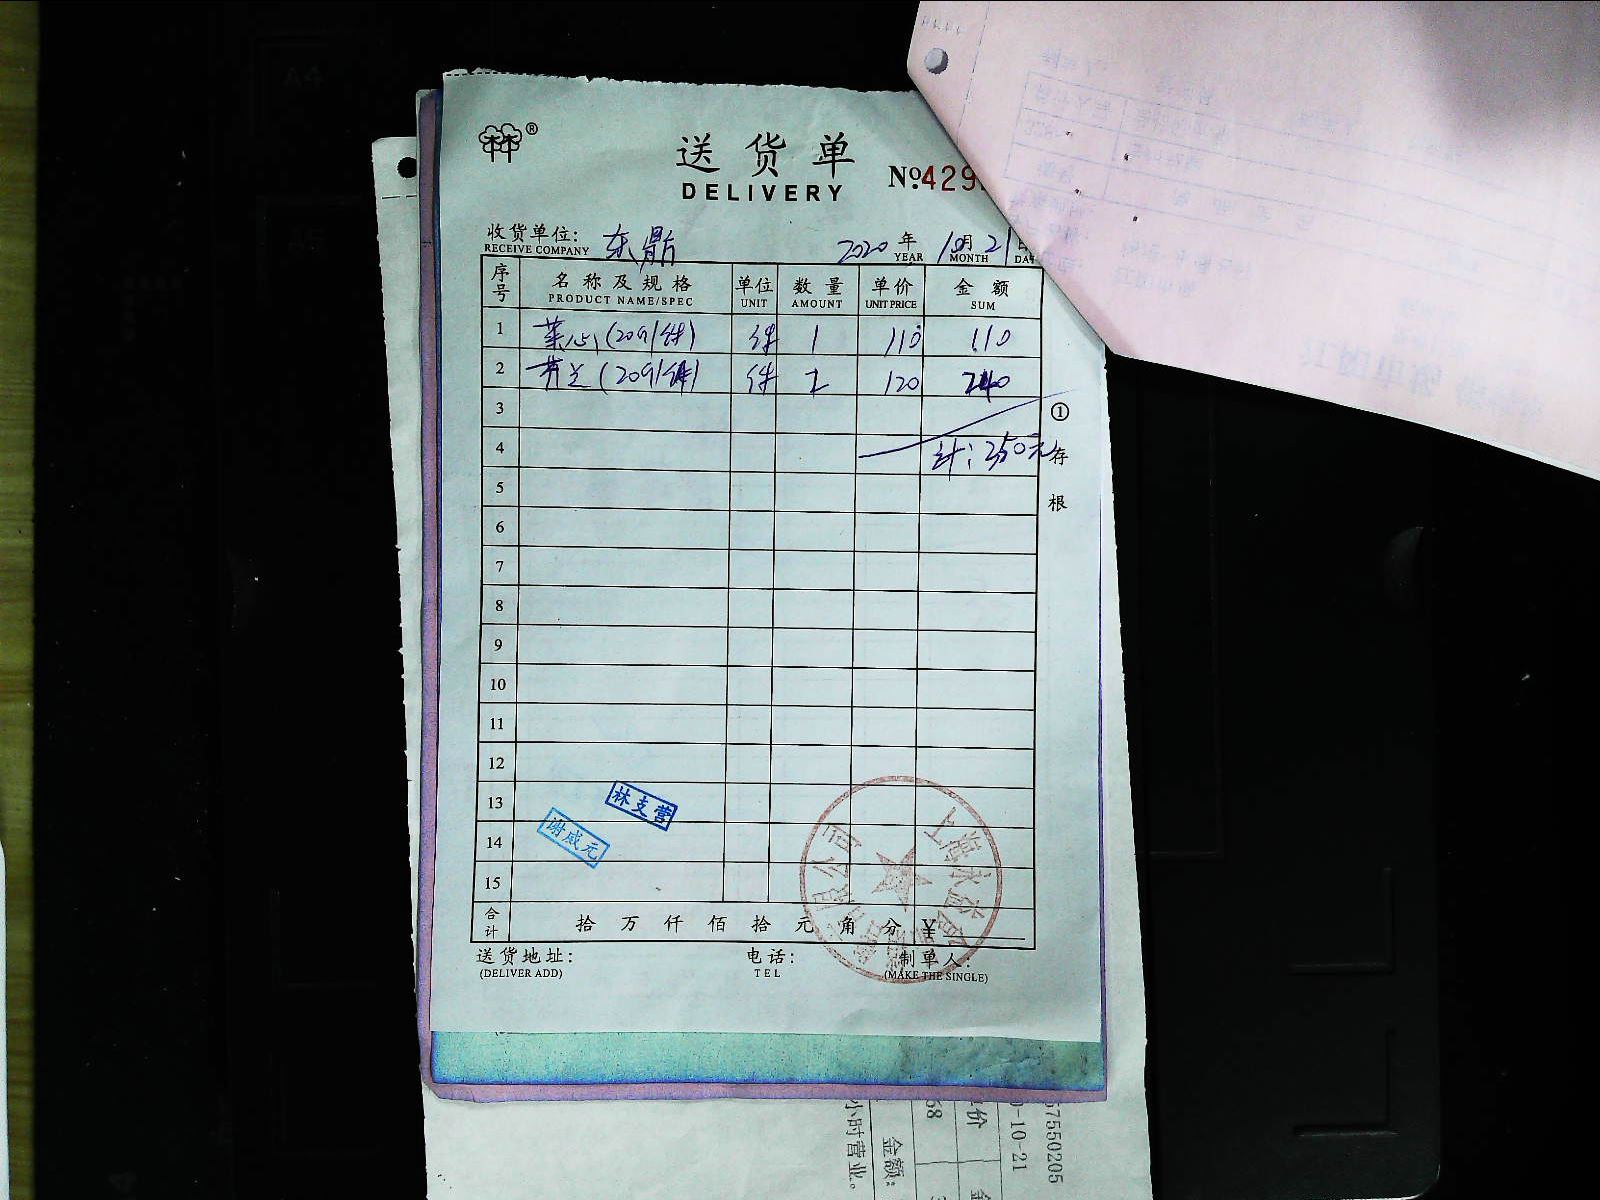 ®
送货单
DELIVERY
№429
收货单位: 东鼎 2020年10月21日
RECEIVE COMPANY YEAR MONTH DAY
序号 名称及规格 单位 数量 单价 金额
PRODUCT NAME/SPEC UNIT AMOUNT UNIT PRICE SUM
1 菜心(20斤/件) 件 1 110 110
2 芥兰(20斤/件) 件 2 120 240
3
4 计:350元
5
6
7
8
9
10
11
12
13
14
15
①存根
林支营
谢成元
合计 拾 万 仟 佰 拾 元 角 分 ¥
送货地址: 电话: 制单人:
(DELIVER ADD) TEL (MAKE THE SINGLE)
57550205
0-10-21
单价
68
金额:
小时营业。